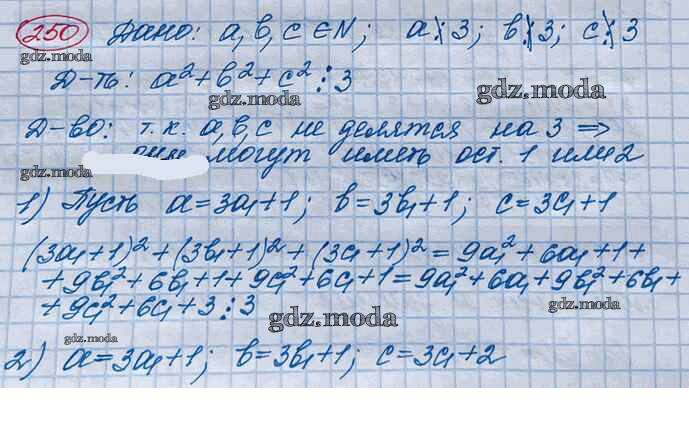 250 Дано: a, b, c ∈ N; a⋮̸3; b⋮̸3; c⋮̸3
gdz.moda
gdz.moda
Д-ть: a²+b²+c²⋮3
gdz.moda
gdz.moda
Д-во: т.к. a, b, c не делятся на 3 ⇒
gdz.moda
могут иметь ост. 1 или 2
1) Пусть a=3a₁+1; b=3b₁+1; c=3c₁+1
(3a₁+1)²+(3b₁+1)²+(3c₁+1)²=9a₁²+6a₁+1+
+9b₁²+6b₁+1+9c₁²+6c₁+1=9a₁²+6a₁+9b₁²+6b₁+
+9c₁²+6c₁+3⋮3
gdz.moda
gdz.moda
gdz.moda
2) a=3a₁+1; b=3b₁+1; c=3c₁+2